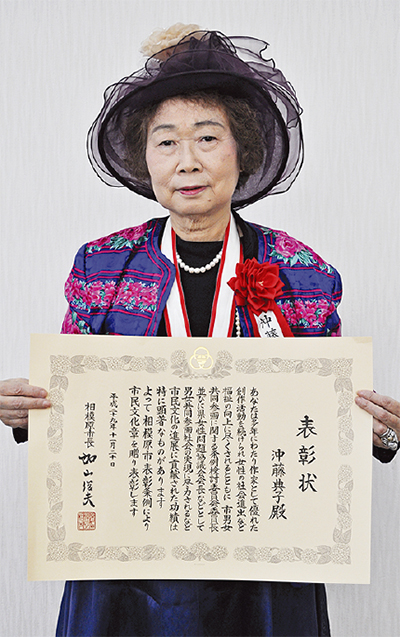 表彰状
沖藤典子殿
あなたは多年にわたり作家として優れた
創作活動を続けられ女性の社会進出など
福祉の向上に尽くされるとともに 市男女
共同参画に関する条例検討委員会委員長
並びに県女性問題協議会会長などとして
男女共同参画社会の実現に尽力されるなど
市民文化の進展に貢献された功績は
特に顕著なものがあります
よって相模原市表彰条例により
市民文化章を贈り表彰します
平成二十九年十一月二十日
相模原市長
加山俊夫
沖藤